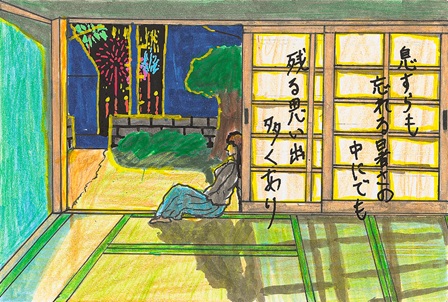 息すらも
忘れる暑さの
中にでも
残る思い出
多くあり